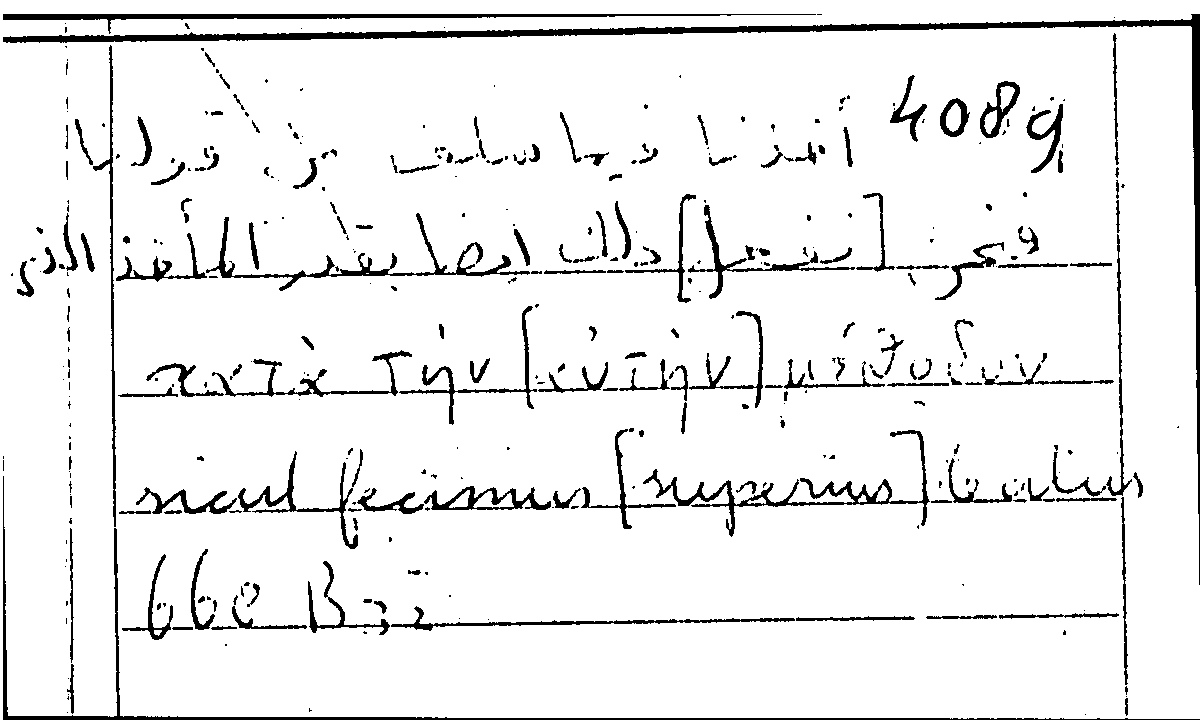 4089 أخذنا فيما سلف من قولنا
فنحن [نفعل] ذلك ايضا بقدر المأخذ الذى
κατὰ τὴν [αὐτὴν] μέθοδον
sicut fecimus [superius] 6 alius
66e B 32